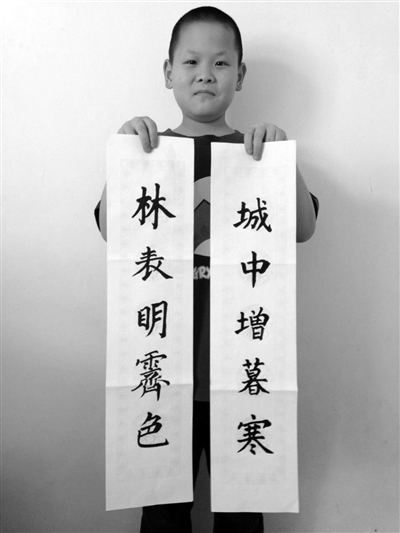 林表明霽色
城中增暮寒